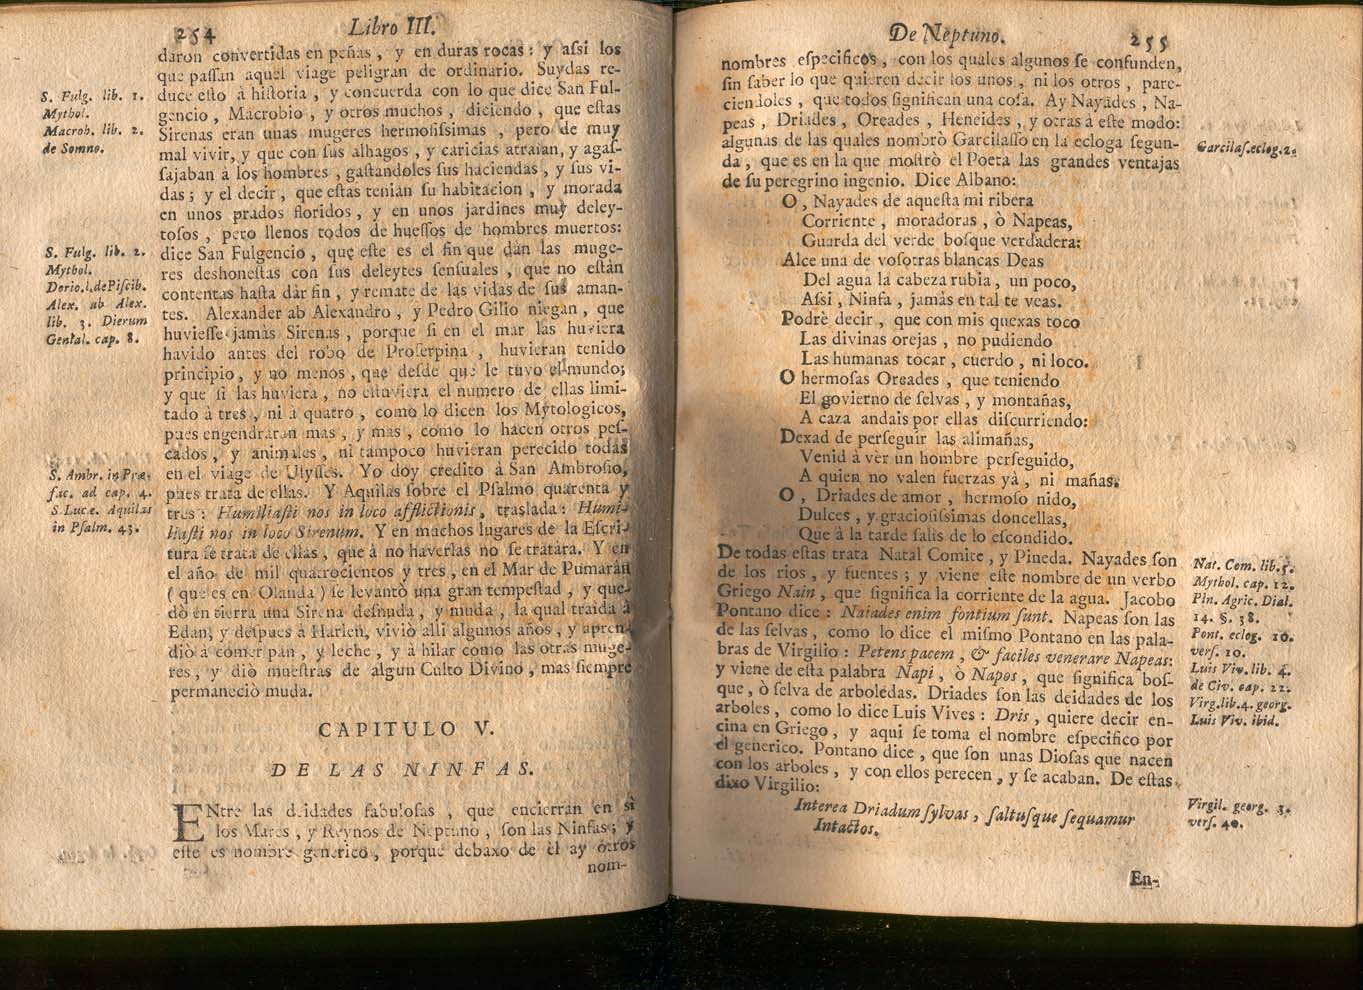 254 Libro III.
daron convertidas en peñas , y en duras rocas : y aſsi los
que paſſan aquel viage peligran de ordinario. Suydas re-
duce eſto à hiſtoria , y concuerda con lo que dice San Ful-
gencio , Macrobio , y otros muchos , diciendo , que eſtas
Sirenas eran unas mugeres hermoſiſsimas , pero de muy
mal vivir, y que con ſus alhagos , y caricias atraìan, y agaſ-
ſajaban à los hombres , gaſtandoles ſus haciendas , y ſus vi-
das ; y el decir , que eſtas tenian ſu habitacion , y morada
en unos prados floridos , y en unos jardines muy deley-
toſos , pero llenos todos de hueſſos de hombres muertos:
dice San Fulgencio , que eſte es el fin que dàn las muge-
res deshoneſtas con ſus deleytes ſenſuales , que no eſtàn
contentas haſta dàr fin , y remate de las vidas de ſus aman-
tes. Alexander ab Alexandro , y Pedro Gilio niegan , que
huvieſſe jamàs Sirenas , porque ſi en el mar las huviera
havido antes del robo de Proſerpina , huvieran tenido
principio, y no menos , que deſde que le tuvo el mundo;
y que ſi las huviera , no eſtuviera el numero de ellas limi-
tado à tres , ni à quatro , como lo dicen los Mytologicos,
pues engendraran mas , y mas , como lo hacen otros peſ-
cados , y animales , ni tampoco huvieran perecido todas
en el viage de Ulyſſes. Yo doy credito à San Ambroſio,
pues trata de ellas. Y Aquilas ſobre el Pſalmo quarenta y
tres : Humiliaſti nos in loco afflictionis , traslada: Humi-
liaſti nos in loco Sirenum. Y en muchos lugares de la Eſcri-
tura ſe trata de ellas , que à no haverlas no ſe tratàra. Y en
el año de mil quatrocientos y tres , en el Mar de Pumaràn
( que es en Olanda ) ſe levantò una gran tempeſtad , y que-
dò en tierra una Sirena deſnuda , y muda , la qual traida à
Edan, y deſpues à Harlen, viviò alli algunos años , y apren-
diò à comer pan , y leche , y à hilar como las otras muge-
res , y diò mueſtras de algun Culto Divino , mas ſiempre
permaneciò muda.
S. Fulg. lib. 1.
Mythol.
Macrob. lib. 2.
de Somno.
S. Fulg. lib. 2.
Mythol.
Dorio.l.de Piſcib.
Alex. ab Alex.
lib. 3. Dierum
Genial. cap. 8.
S. Ambr. in Præ-
fac. ad cap. 4.
S. Lucæ. Aquilas
in Pſalm. 43.
CAPITULO V.
DE LAS NINFAS.
ENtre las deidades fabuloſas , que encierran en sì
los Mares , y Reynos de Neptuno , ſon las Ninfas ; y
eſte es nombre generico , porque debaxo de èl ay otros
nom-
De Neptuno. 255
nombres eſpecificos , con los quales algunos ſe confunden,
ſin ſaber lo que quieren decir los unos , ni los otros , pare-
ciendoles , que todos ſignifican una coſa. Ay Nayades , Na-
peas , Driades , Oreades , Heneides , y otras à eſte modo:
algunas de las quales nombrò Garcilaſſo en la ecloga ſegun-
da , que es en la que moſtrò el Poeta las grandes ventajas
de ſu peregrino ingenio. Dice Albano:
O , Nayades de aqueſta mi ribera
Corriente , moradoras , ò Napeas,
Guarda del verde boſque verdadera;
Alce una de voſotras blancas Deas
Del agua la cabeza rubia , un poco,
Aſsi , Ninfa , jamàs en tal te veas.
Podrè decir , que con mis quexas toco
Las divinas orejas , no pudiendo
Las humanas tocar , cuerdo , ni loco.
O hermoſas Oreades , que teniendo
El govierno de ſelvas , y montañas,
A caza andais por ellas diſcurriendo:
Dexad de perſeguir las alimañas,
Venid à vèr un hombre perſeguido,
A quien no valen fuerzas yà , ni mañas.
O , Driades de amor , hermoſo nido,
Dulces , y gracioſiſsimas doncellas,
Que à la tarde ſalis de lo eſcondido.
De todas eſtas trata Natal Comite , y Pineda. Nayades ſon
de los rios , y fuentes ; y viene eſte nombre de un verbo
Griego Nain , que ſignifica la corriente de la agua. Jacobo
Pontano dice : Naiades enim fontium ſunt. Napeas ſon las
de las ſelvas , como lo dice el miſmo Pontano en las pala-
bras de Virgilio : Petens pacem , & faciles venerare Napeas:
y viene de eſta palabra Napi , ò Napos , que ſignifica boſ-
que , ò ſelva de arboledas. Driades ſon las deidades de los
arboles , como lo dice Luis Vives : Dris , quiere decir en-
cina en Griego , y aqui ſe toma el nombre eſpecifico por
el generico. Pontano dice , que ſon unas Dioſas que nacen
con los arboles , y con ellos perecen , y ſe acaban. De eſtas
dixo Virgilio:
Interea Driadum ſylvas , ſaltuſque ſequamur
Intactos.
En-
Garcilaſ.eclog.2.
Nat. Com. lib.5.
Mythol. cap. 12.
Pin. Agric. Dial.
14. §. 38.
Pont. eclog. 10.
verſ. 10.
Luis Viv. lib. 4.
de Civ. cap. 22.
Virg.lib.4. georg.
Luis Viv. ibid.
Virgil. georg. 3.
verſ. 40.